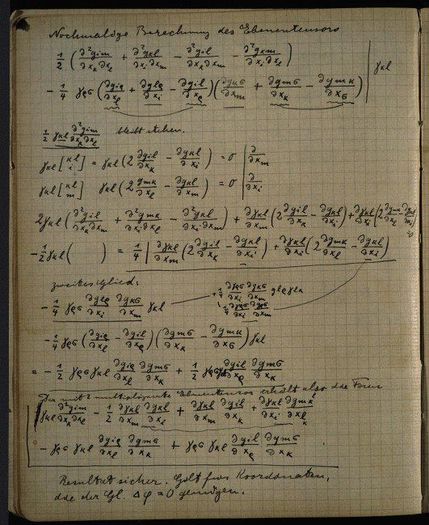 Nochmalige Berechnung des Ebenentensors
½ (∂²g_im/∂x_k∂x_l + ∂²g_kl/∂x_i∂x_m − ∂²g_il/∂x_k∂x_m − ∂²g_km/∂x_i∂x_l)
− ¼ γ_ρσ (∂g_iρ/∂x_l + ∂g_lρ/∂x_i − ∂g_il/∂x_ρ)(∂g_kσ/∂x_m + ∂g_mσ/∂x_k − ∂g_mk/∂x_σ) | γ_kl
½ γ_kl ∂²g_im/∂x_k∂x_l bleibt stehen.
γ_kl [kl i] = γ_kl (2 ∂g_il/∂x_k − ∂g_kl/∂x_i) = 0 | ∂/∂x_m
γ_kl [kl m] γ_kl (2 ∂g_mk/∂x_l − ∂g_kl/∂x_m) = 0 | ∂/∂x_i
2γ_kl (∂²g_il/∂x_k∂x_m + ∂²g_mk/∂x_l∂x_i − ∂²g_kl/∂x_i∂x_m) + ∂γ_kl/∂x_m (2 ∂g_il/∂x_k − ∂g_kl/∂x_i) + ∂γ_kl/∂x_i (2 ∂g_mk/∂x_l − ∂g_kl/∂x_m)
− ½ γ_kl ( ) = ¼ | ∂γ_kl/∂x_m (2 ∂g_il/∂x_k − ∂g_kl/∂x_i) + ∂γ_kl/∂x_i (2 ∂g_mk/∂x_l − ∂g_kl/∂x_m)
zweites Glied:
− ¼ γ_ρσ ∂g_lρ/∂x_i ∂g_kσ/∂x_m γ_kl
− ¼ γ_ρσ (∂g_iρ/∂x_l − ∂g_il/∂x_ρ)(∂g_mσ/∂x_k − ∂g_mk/∂x_σ) γ_kl
= − ½ γ_ρσ γ_kl ∂g_iρ/∂x_l ∂g_mσ/∂x_k + ½ γ_ρσ γ_kl ∂g_il/∂x_ρ ∂g_mσ/∂x_k
Der mit 2 multiplizierte Ebenentensor erhält also die Form
γ_kl ∂²g_im/∂x_k∂x_l − ½ ∂γ_kl/∂x_m ∂g_kl/∂x_i + ∂γ_kl/∂x_m ∂g_il/∂x_k + ∂γ_kl/∂x_i ∂g_mk/∂x_l
− γ_ρσ γ_kl ∂g_iρ/∂x_l ∂g_mσ/∂x_k + γ_ρσ γ_kl ∂g_il/∂x_ρ ∂g_mσ/∂x_k
Resultat sicher. Gilt für Koordinaten,
die der Gl. Δφ = 0 genügen.